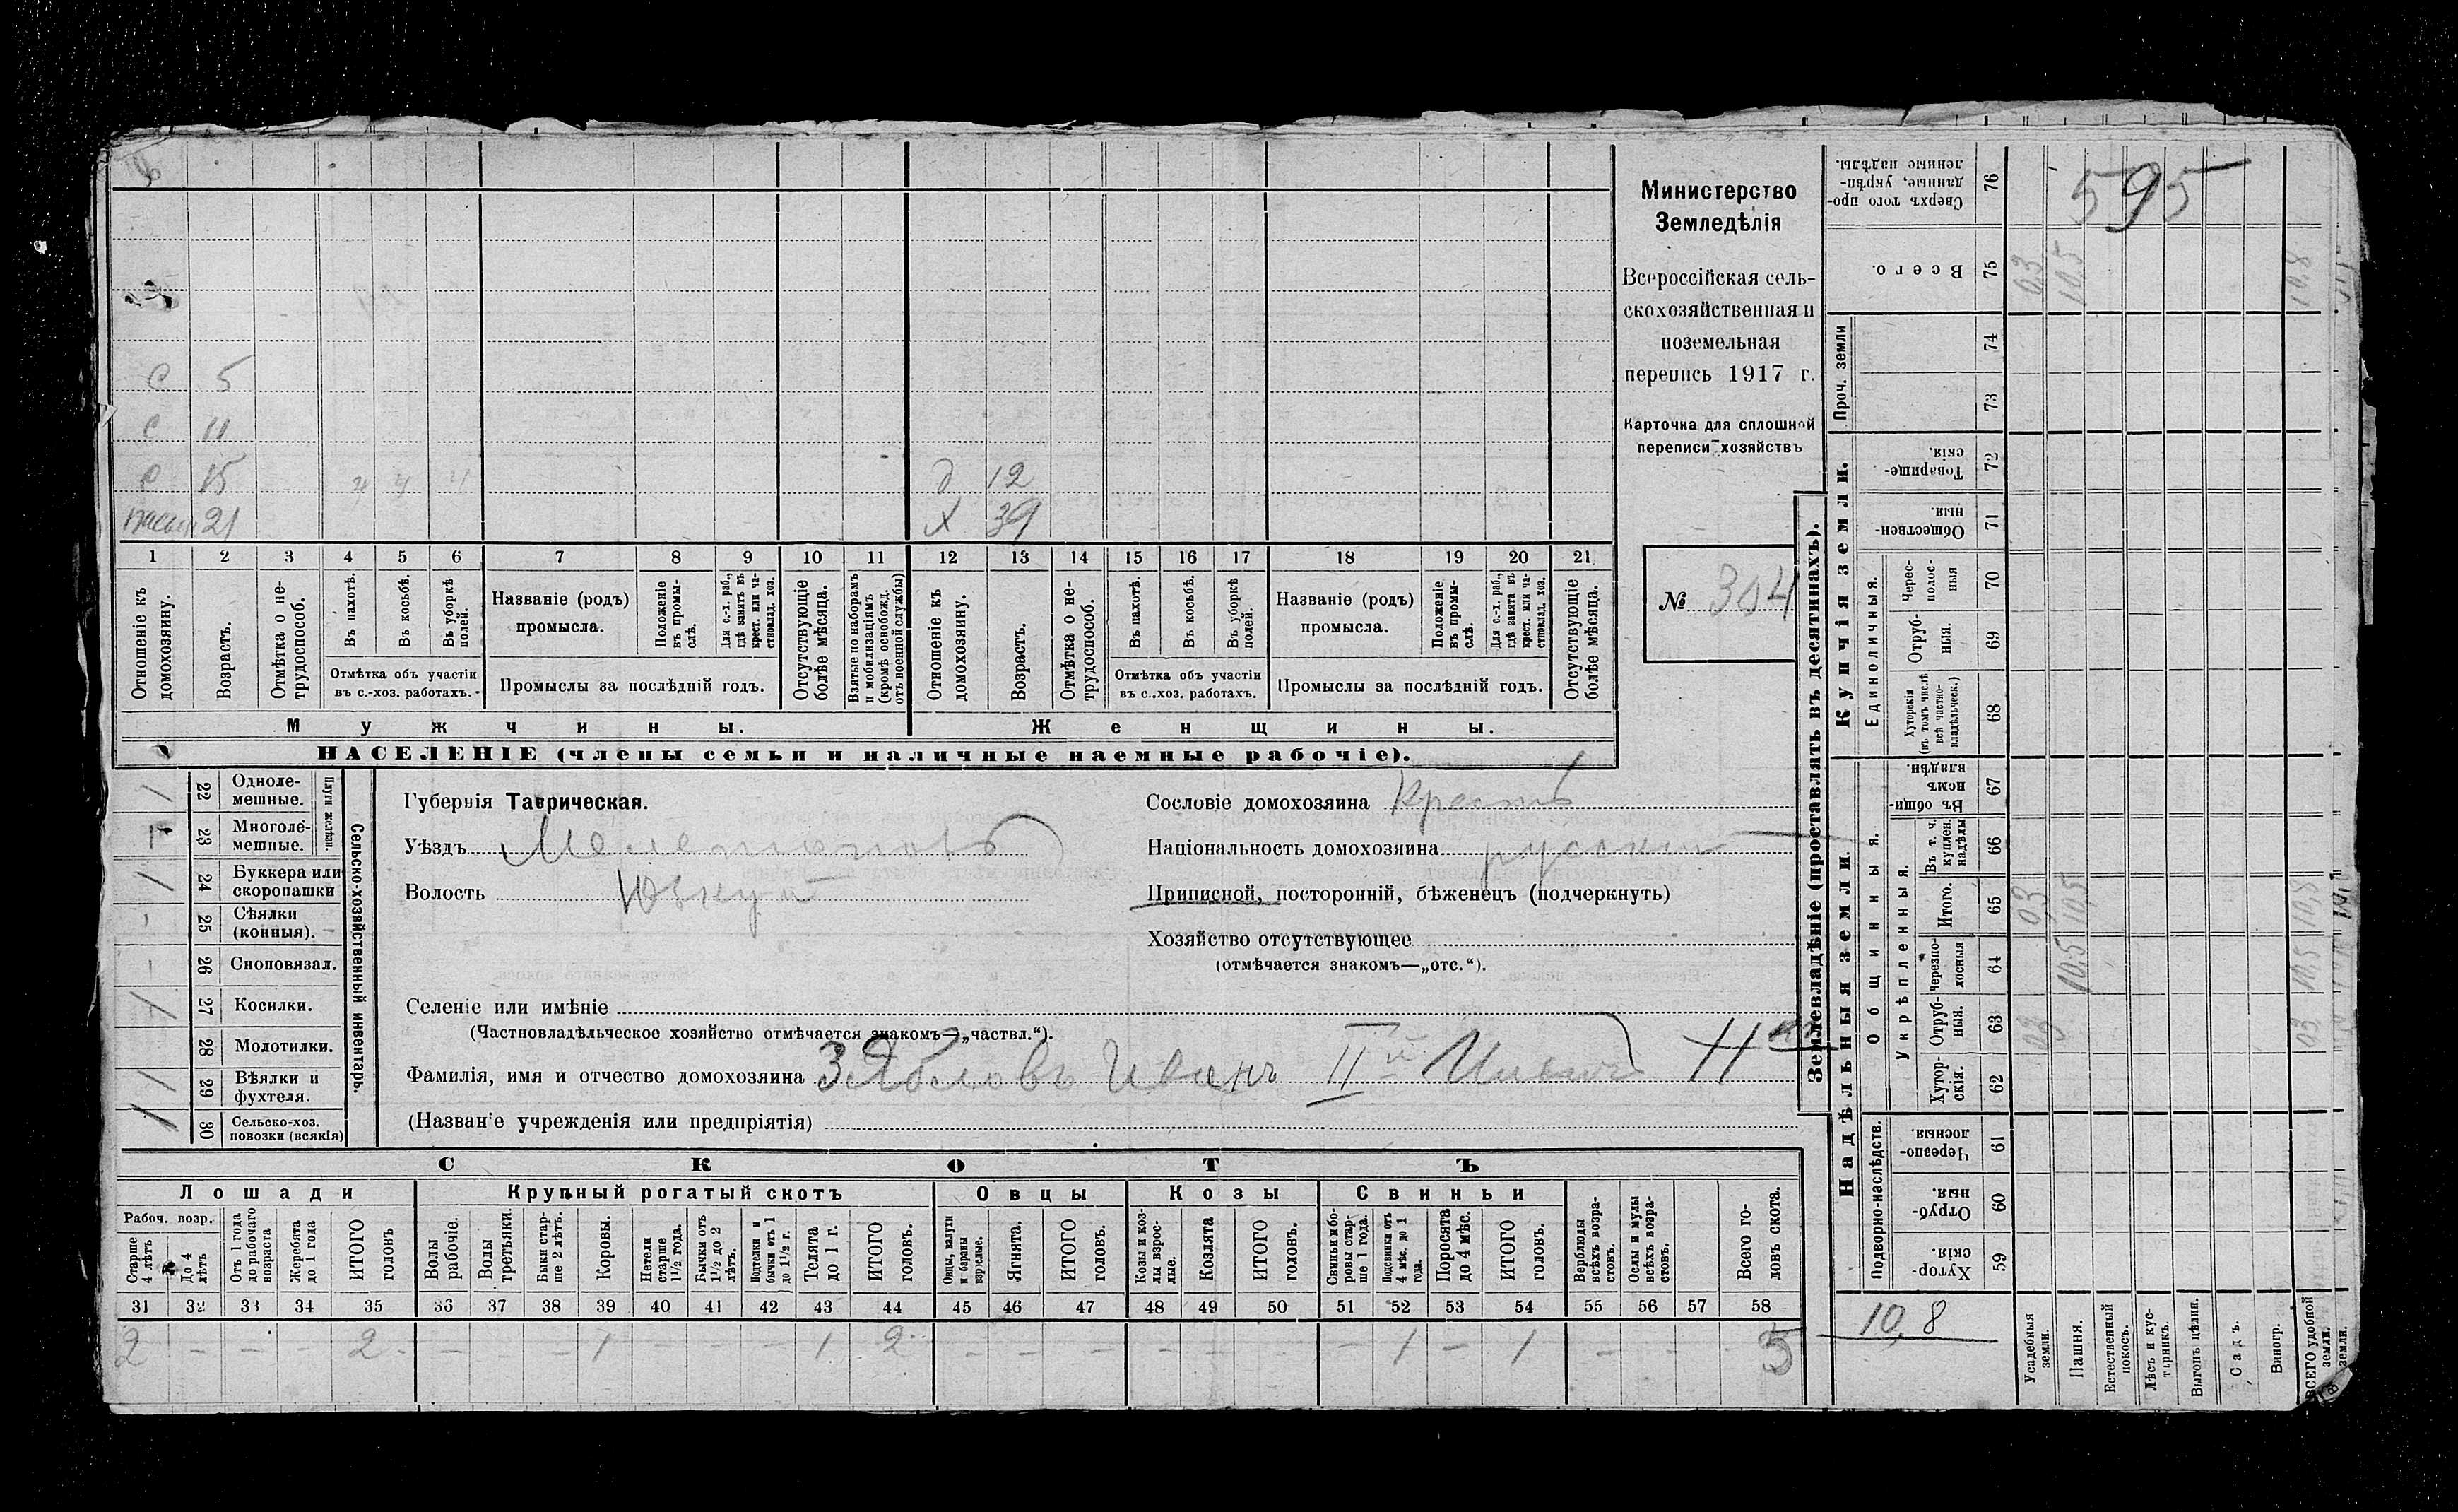 595
Министерство
Земледѣлія
Всероссійская сель-
скохозяйственная и
поземельная
перепись 1917 г.
Карточка для сплошной
переписи хозяйствъ
№ 304
с 5
с 11
с 15 ч ч ч д 12
21 х 39
1 2 3 4 5 6 7 8 9 10 11 12 13 14 15 16 17 18 19 20 21
Отношеніе къ домохозяину.
Возрастъ.
Отмѣтка о не-трудоспособ.
Въ пахотѣ.
Въ косьбѣ.
Въ уборкѣ полей.
Отмѣтка объ участіи
въ с.-хоз. работахъ.
Названіе (родъ)
промысла.
Положеніе въ промы-слѣ.
Для с.-х. раб., гдѣ занятъ въ крест. или ча-стновлад. хоз.
Промыслы за послѣдній годъ.
Отсутствующіе болѣе мѣсяца.
Взятые по наборамъ и мобилизаціямъ (кромѣ освобожд. отъ военной службы)
Отношеніе къ домохозяину.
Возрастъ.
Отмѣтка о не-трудоспособ.
Въ пахотѣ.
Въ косьбѣ.
Въ уборкѣ полей.
Отмѣтка объ участіи
въ с.-хоз. работахъ.
Названіе (родъ)
промысла.
Положеніе въ промы-слѣ.
Для с.-х. раб., гдѣ занята въ крест. или ча-стновлад. хоз.
Промыслы за послѣдній годъ.
Отсутствующіе болѣе мѣсяца.
Мужчины. Женщины.
НАСЕЛЕНІЕ (члены семьи и наличные наемные рабочіе).
Сельско-хозяйственный инвентарь.
Плуги желѣзн.
22 Одноле-мешные.
23 Многоле-мешные.
24 Буккера или скоропашки
25 Сѣялки (конныя).
26 Сноповязал.
27 Косилки.
28 Молотилки.
29 Вѣялки и фухтеля.
30 Сельско-хоз. повозки (всякія)
Губернія Таврическая.
Уѣздъ Мелитопол
Волость Юзкуй
Селеніе или имѣніе
(Частновладѣльческое хозяйство отмѣчается знакомъ—„частвл.“).
Фамилія, имя и отчество домохозяина Зябловъ Иванъ IIй
(Названіе учрежденія или предпріятія)
Сословіе домохозяина Крест
Національность домохозяина русскій
Приписной, посторонній, бѣженецъ (подчеркнуть)
Хозяйство отсутствующее
(отмѣчается знакомъ—„отс.“).
СКОТЪ
Лошади Крупный рогатый скотъ Овцы Козы Свиньи
Рабоч. возр.
Старше 4 лѣтъ
До 4 лѣтъ
Отъ 1 года до рабочаго возраста
Жеребята до 1 года
ИТОГО головъ
Волы рабочіе.
Волы третьяки.
Быки стар-ше 2 лѣтъ.
Коровы.
Нетели старше 1½ года.
Бычки отъ 1½ до 2 лѣтъ.
Подтелки и бычки отъ 1 до 1½ г.
Телята до 1 г.
ИТОГО головъ.
Овцы, валухи и бараны взрослые.
Ягнята.
ИТОГО головъ.
Козы и коз-лы взрос-лые.
Козлята
ИТОГО головъ.
Свиньи и бо-ровы стар-ше 1 года.
Подсвинки отъ 4 мѣс. до 1 года.
Поросята до 4 мѣс.
ИТОГО головъ.
Верблюды всѣхъ возра-стовъ.
Ослы и мулы всѣхъ возра-стовъ.
Всего го-ловъ скота.
31 32 33 34 35 36 37 38 39 40 41 42 43 44 45 46 47 48 49 50 51 52 53 54 55 56 57 58
2 – – – 2 – – – 1 – – – 1 2 – – – – – – – 1 – 1 – – 5
Землевладѣніе (проставлять въ десятинахъ).
Купчія земли.
Проч. земли
Сверхъ того про-данные, укрѣп-ленные надѣлы. 76
Всего. 75 03 10,5 10,8
74
73
Товарище-скія. 72
Обществен-ныя. 71
Единоличныя.
Черес-полос-ныя 70
Отруб-ныя. 69
Хуторскія (въ томъ числѣ всѣ частно-владѣльческ.) 68
Надѣльныя земли.
Общинныя.
Въ общин-номъ владѣн. 67
Укрѣпленныя.
Въ т. ч. куплен. надѣлы 66
Итого. 65 03 10,5 10,8
Черезпо-лосныя 64 10,5 10,5
Отруб-ныя. 63 03 03
Хутор-скія. 62
Подворно-наслѣдств.
Черезпо-лосныя. 61
Отруб-ныя. 60
Хутор-скія. 59
10,8
Усадебныя земли.
Пашня.
Естественный покосъ.
Лѣсъ и кус-тарникъ.
Выгонъ цѣлин.
Садъ.
Виногр.
ВСЕГО удобной земли.
земли.